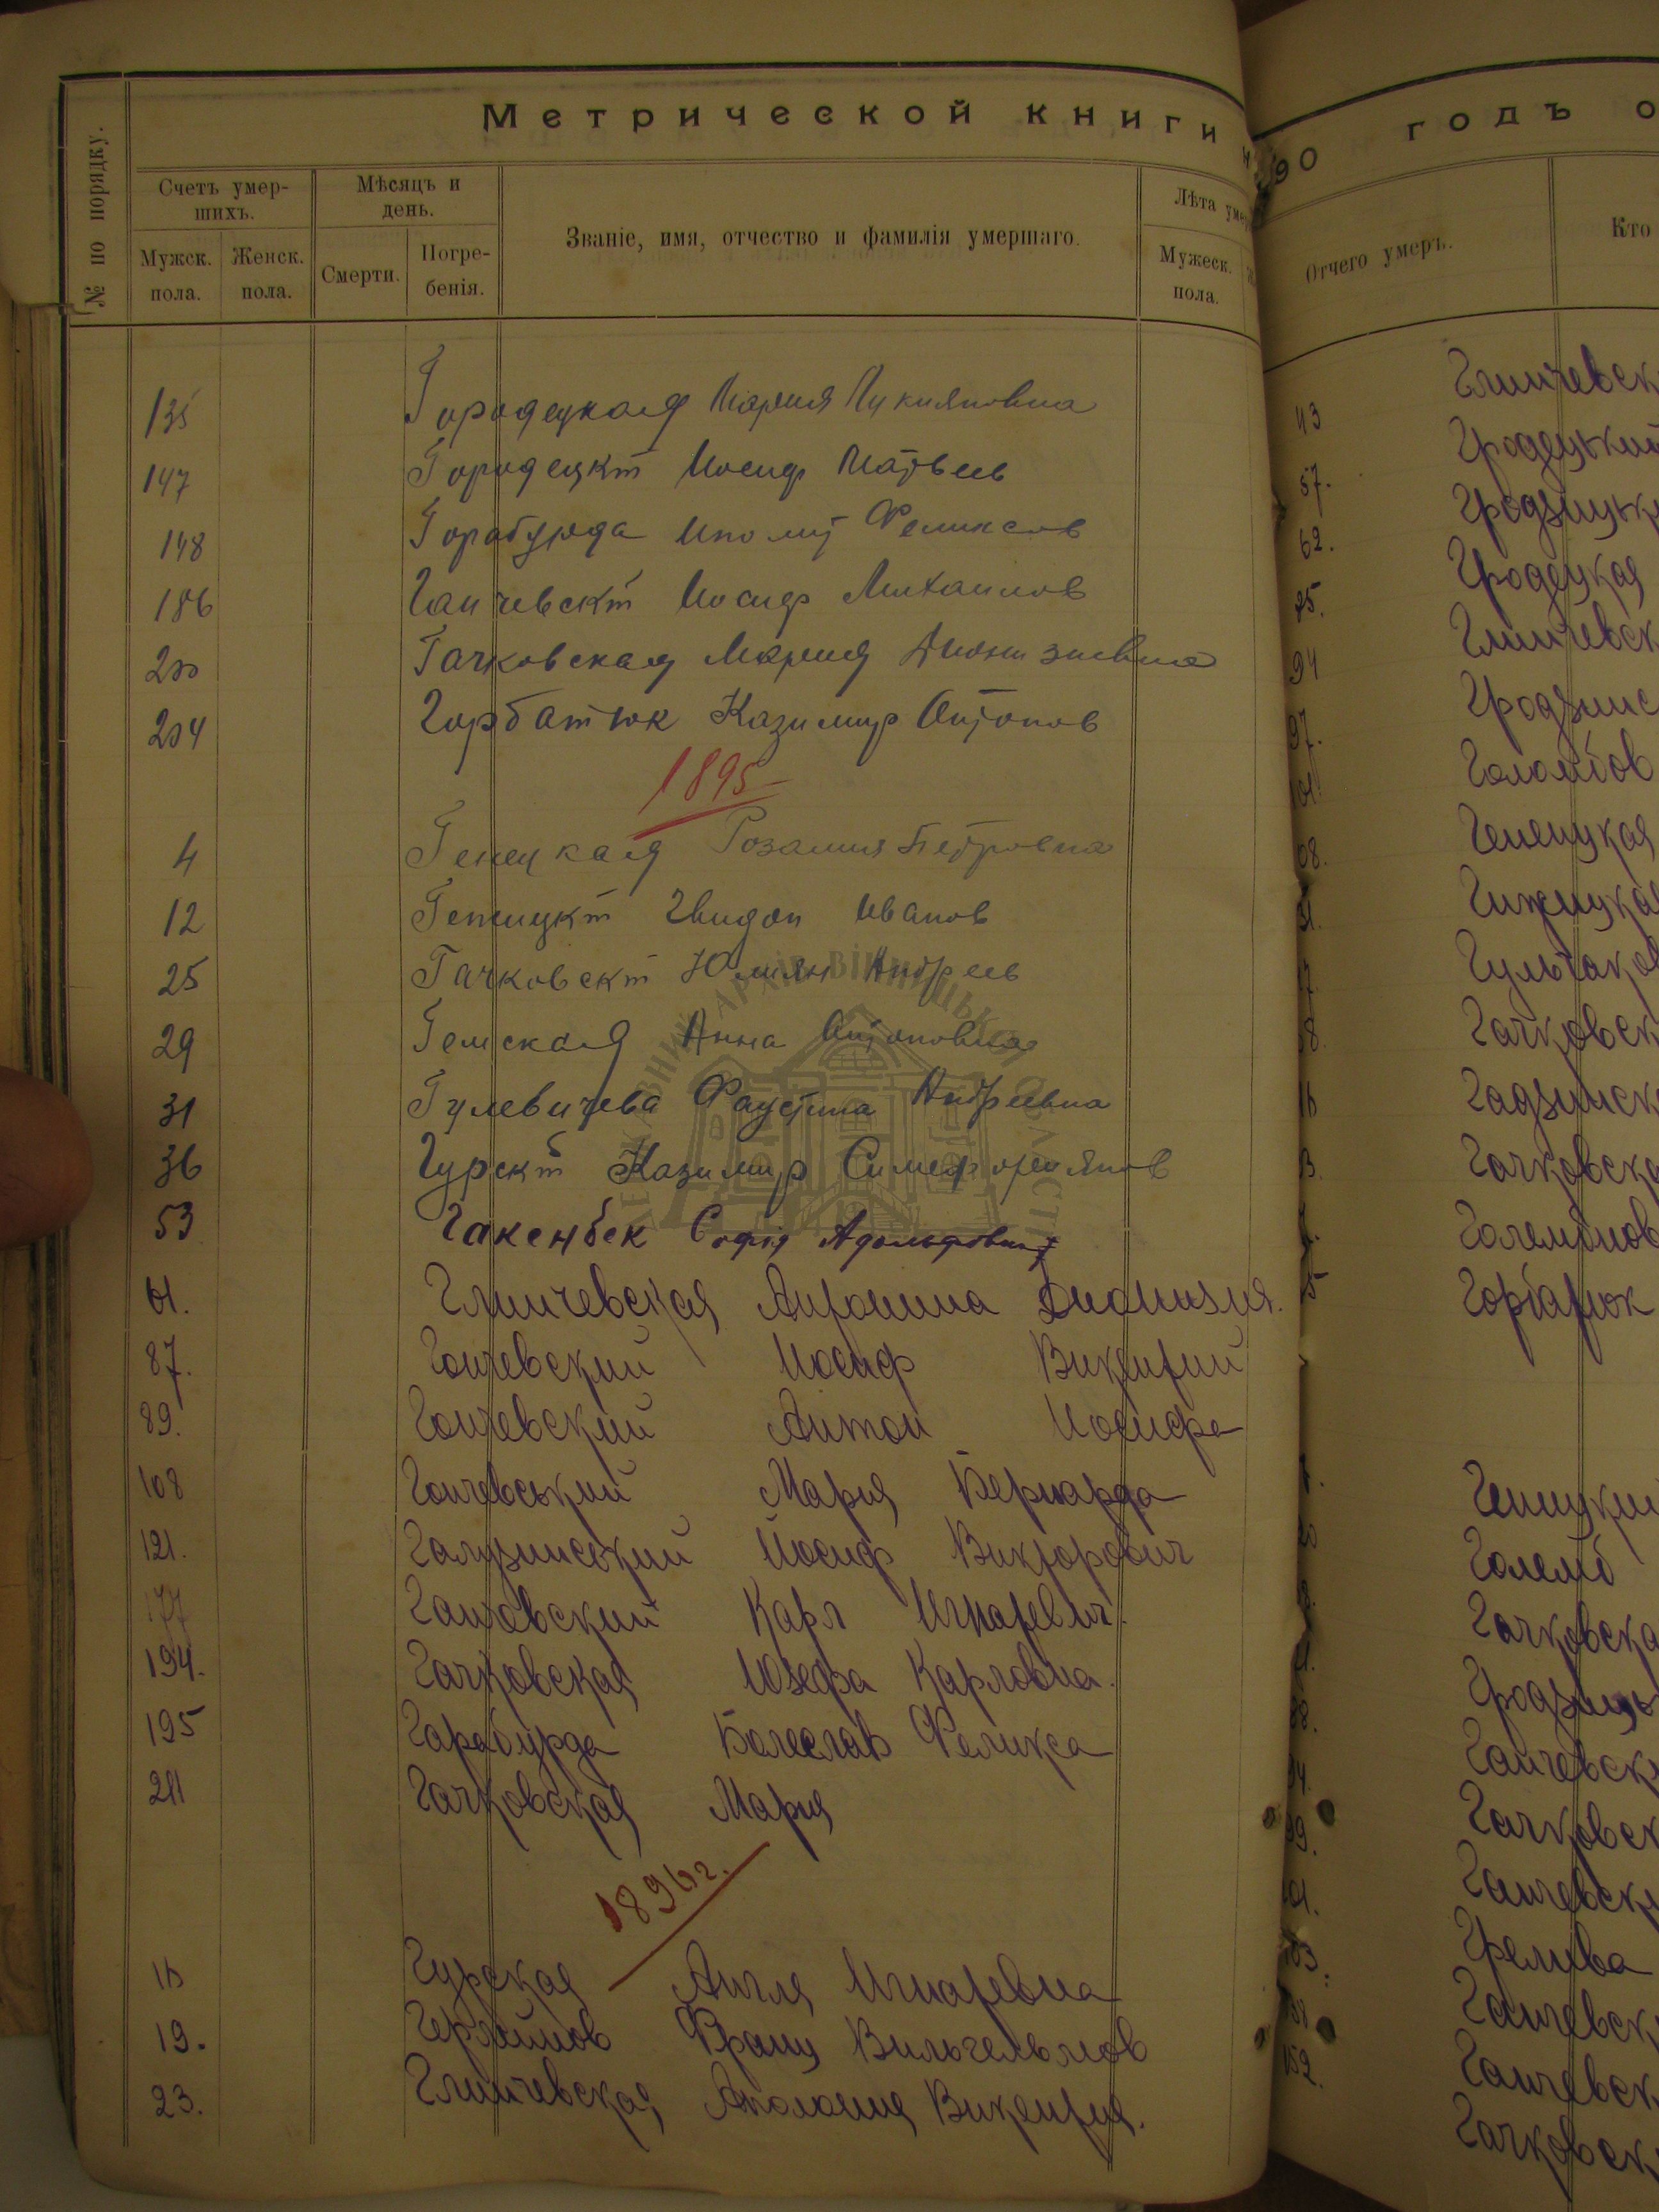 Метрической книги н
№ по порядку.
Счетъ умер-
шихъ.
Мужск.
пола.
Женск.
пола.
Мѣсяцъ и
день.
Смерти.
Погре-
бенія.
Званіе, имя, отчество и фамилія умершаго.
Лѣта умер
Мужеск.
пола.
135 Городецкая Мария Лукияновна
147 Городецкій Иосиф Матвеев
148 Горабурда Иполит Феликсов
186 Ганчевскій Иосиф Михаилов
200 Гачковская Мария Дионизиевна
204 Горбатюк Казимир Антонов
1895
4 Генецкая Розалия Петровна
12 Геницкій Гвидон Иванов
25 Гачковскій Юлиян Андреев
29 Гемская Анна Антоновна
31 Гулевичева Фаустина Андреевна
36 Гурскій Казимир Симфориянов
53 Гакенбек Софія Адольфовна
61. Глинчевская Антонина Дионизия.
87. Гончевский Иосиф Викентий
89. Гончевский Антон Иосифа
108 Гончевський Мария Бернарда
121. Галузинський Йосиф Викторович
177 Ганчевский Карл Игнатевич.
194. Гачковская Юзефа Карловна.
195 Гарабурда Болеслав Феликса
211 Гачковская Мария
1896г.
16 Гурская Анеля Игнатевна
19. Франц Вильгельмов
23. Глинчевская Аполония Викентия.
90 годъ о
Отчего умеръ.
Кто
43 Глинчевск
57. Гродецький
62. Гродзицьк
85. Гродецкая
94 Глинчевск
97. Гродзинс
Голомбов
Генецкая
Гижицка
Гульчаков
Гачковск
Гадзинск
Гачковска
Голембиов
Горбатюк
Геницки
Големб
Гачковска
Гродзиць
Ганчевск
Гачковск
Ганчевск
Грелива
Ганчевск
152. Ганчевск
Гачковск